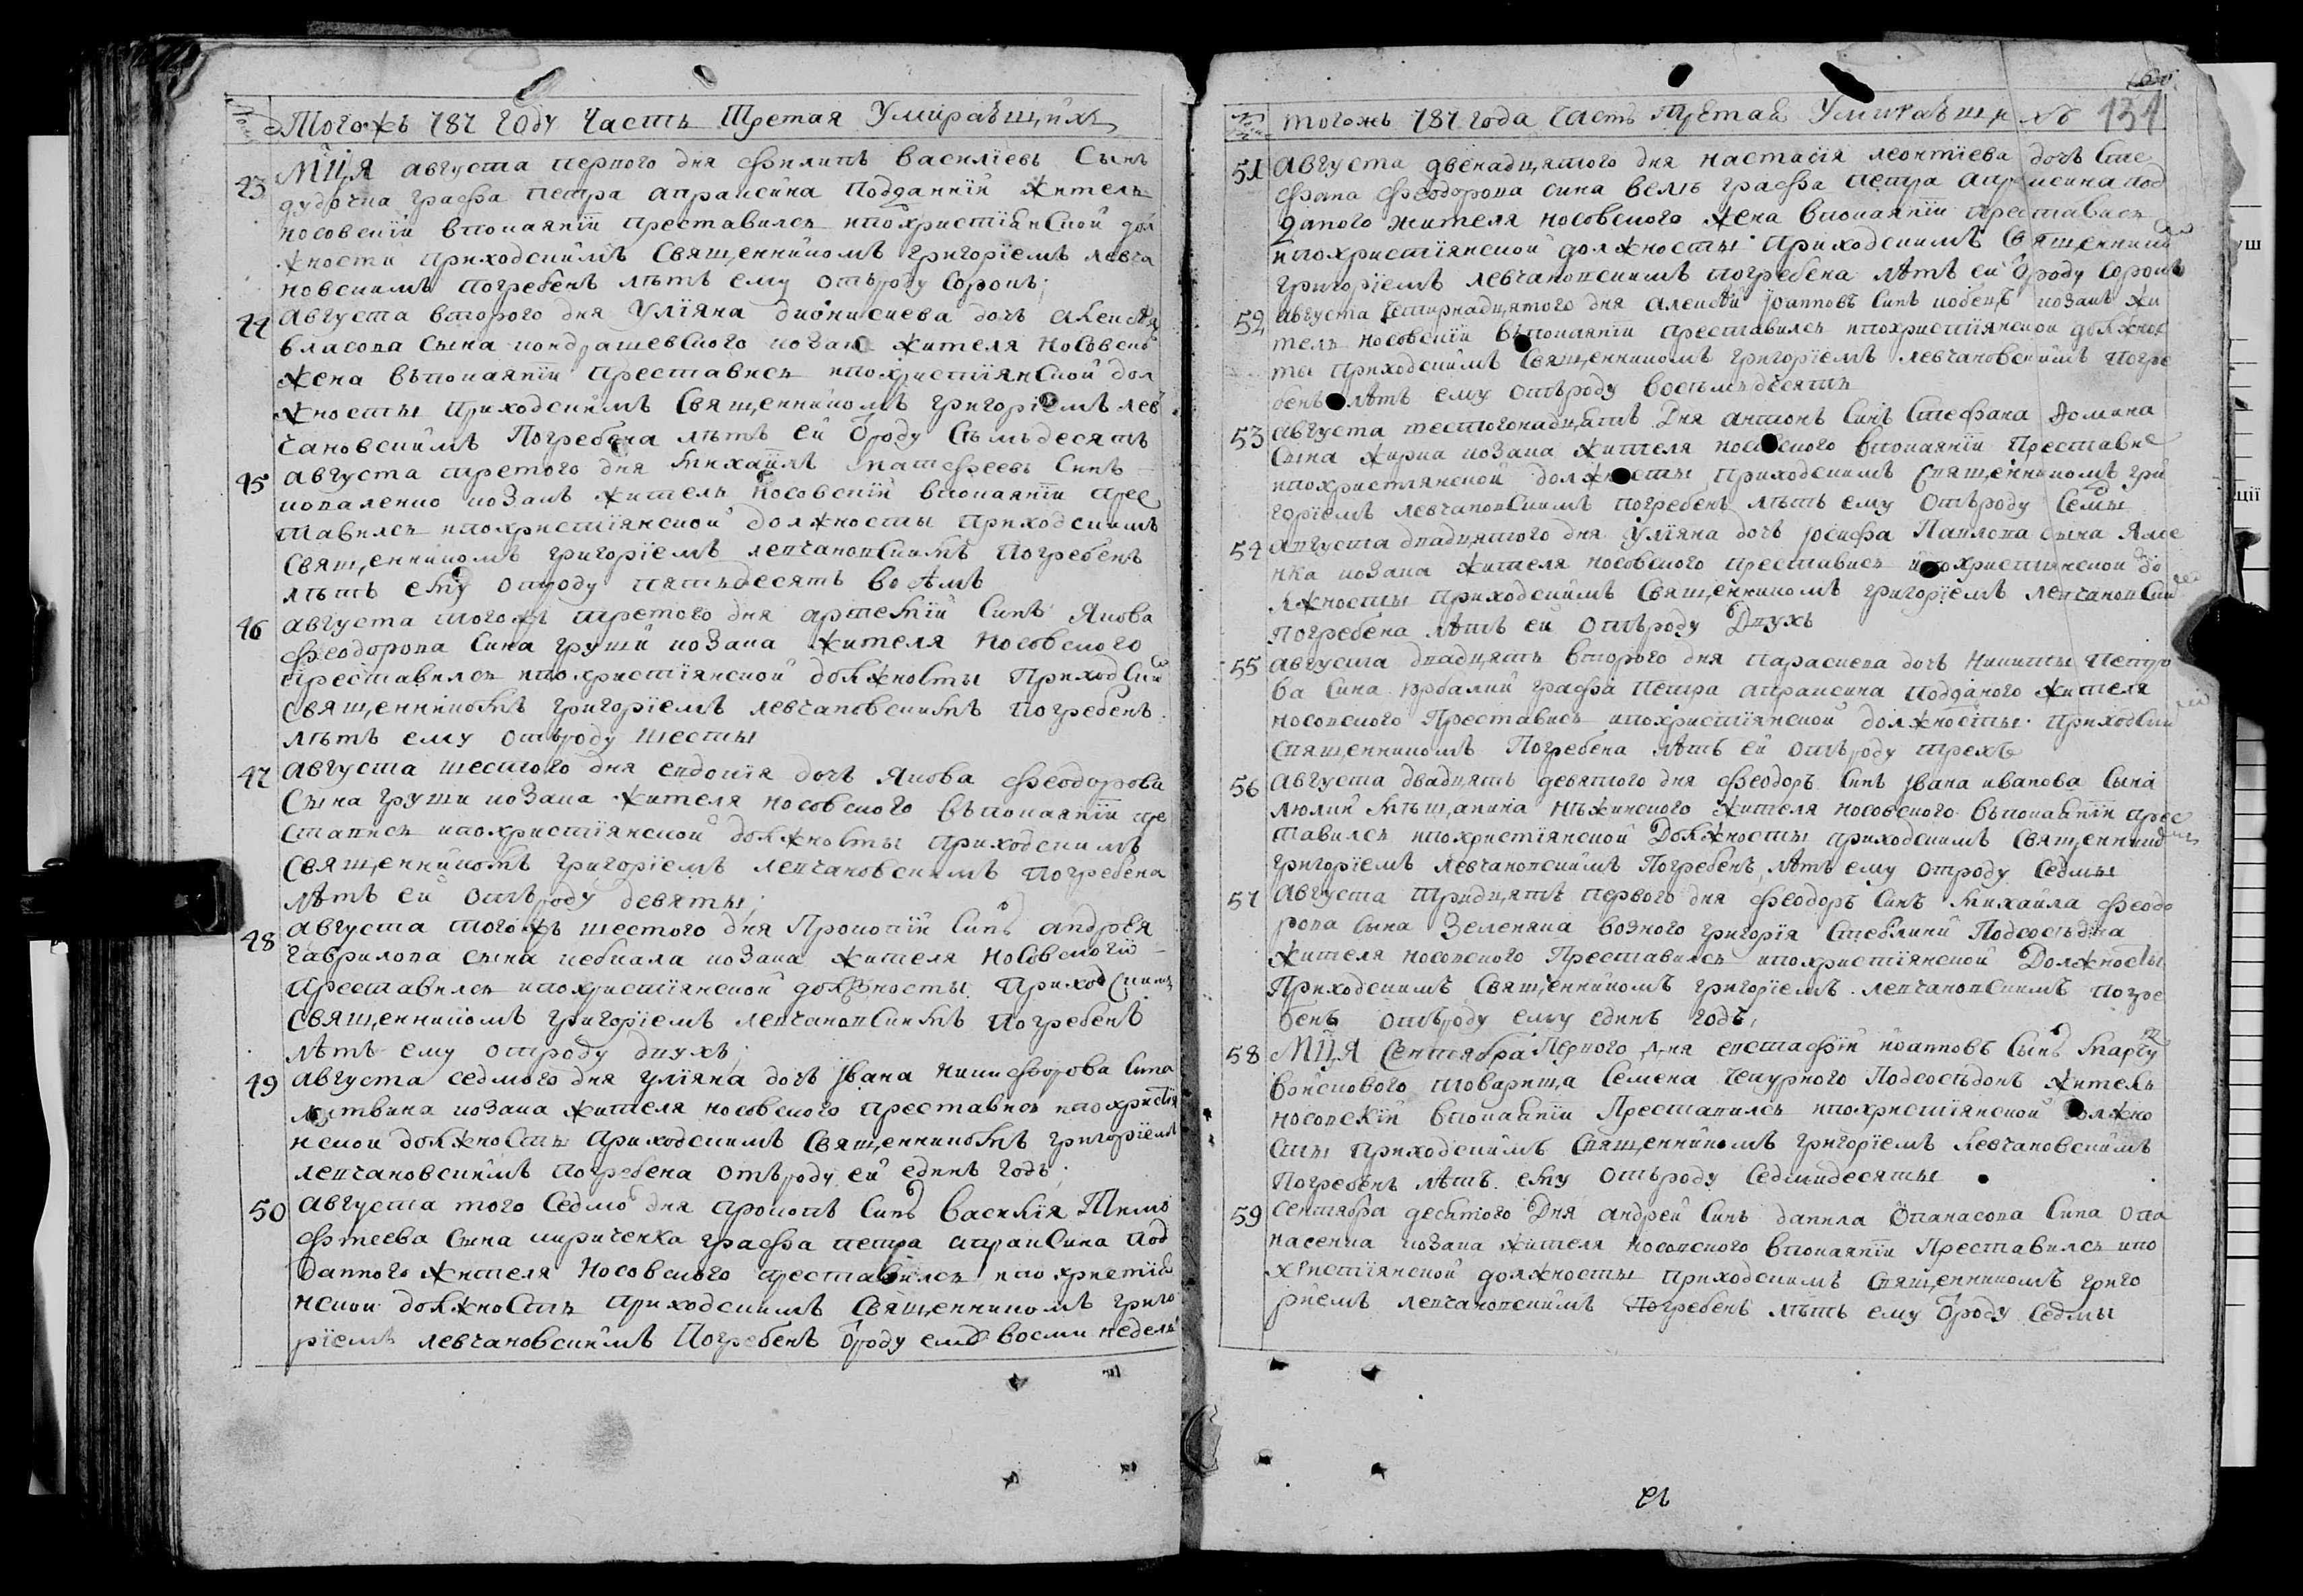 Тогожъ 787 году Часть Третая Умиравшихъ
43 Мца августа первого дня филипъ василіевъ Сынъ
дудочка графа петра апраксина подданній житель
носовскій впокаяніи преставилсь ипохристіянской дол
жности приходскимъ Священникомъ григоріемъ левча
новскимъ погребенъ лѣтъ ему отъроду сорокъ;
44 Августа второго дня Уліяна дионисиева дочъ алексѣя
власова сына кондрашевского козака жителя носовско
жена въпокаяніи преставись ипохристіянской дол
жносты приходскимъ Священникомъ григоріемъ лев
чановскимъ Погребена лѣтъ ей ѿроду Семьдесятъ
45 августа третого дня михаилъ матфеевъ Синъ
коваленко козакъ житель носовскій впокаяніи прес
тавилсь ипохристіянской должносты приходскимъ
Священникомъ григоріемъ левчановскимъ погребенъ
лѣтъ ему отроду пятьдесятъ восѣмъ
46 августа тогожъ третого дня артемій Синъ Якова
феодорова Сина груши козака жителя носовского
преставилсь ипохристіянской должносты Приходски
Священникомъ григоріемъ левчановскимъ погребенъ
лѣтъ ему отъроду шесты
47 Августа шестого дня евдокія дочъ Якова феодорова
Сына груши козака жителя носовского въпокаяніи пре
ставись ипохристіянской должносты приходскимъ
Священникомъ григоріемъ левчановскимъ погребена
лѣтъ ей отъроду девяты;
48 августа тогожъ шестого дня Прокопій Синъ андрея
гаврилова сына кебкала козака жителя носовского
преставилсь ипохристіянской должносты Приходскимъ
Священникомъ григоріемъ левчановскимъ погребенъ
лѣтъ ему отроду двухъ;
49 Августа седмого дня уліяна дочъ Івана никифорова Сина
литвина козака жителя носовского преставись ипохристія
нской должносты приходскимъ Священникомъ григоріемъ
левчановскимъ погребена отъроду ей единъ годъ;
50 августа того Седмо дня прокопъ Синъ василія Тимо
фтеева Сына кириченка графа петра апраксина под
данного жителя носовского преставилсь ипохристія
нской должносты приходскимъ Священникомъ григо
ріемъ левчановскимъ Погребенъ ѿроду ему восми недель
тогожъ 787 года Часть Третая Умиравши хъ 131
51 Августа двенадцятого дня настасія леонтіева дочъ Сте
фана феодорова сина графа петра апраксина под
даного жителя носовского жена впокаяніи преставись
ипохристіянской должносты приходскимъ Священникомъ
григоріемъ левчановскимъ погребена лѣтъ ей ѿроду сорокъ
52 августа четирнадцятого дня алексѣй іоанновъ Синъ козакъ жи
тель носовскій въпокаяніи преставилсь ипохристіянской должнос
ты приходскимъ Священникомъ григоріемъ левчановскимъ погре
бенъ лѣтъ ему отъроду восѣмъдесятъ
53 августа шестогонадцять Дня антонъ Синъ Стефана домина
Сына козака жителя носовского впокаяніи Преставис
ипохристіянской должносты приходскимъ Священникомъ гри
горіемъ левчановскимъ погребенъ лѣтъ ему Отъроду Семы
54 Августа двадцятого дня уліяна дочъ іосифа Павлова сына
козака жителя носовского преставись ипохристіянской до
лжносты приходскимъ Священникомъ григоріемъ левчановски
Погребена лѣтъ ей отъроду Двухъ
55 августа двадцять второго дня параскева дочъ никиты Петро
ва Сина графа петра апраксина подданого жителя
носовского Преставись ипохристіянской должносты приходски
Священникомъ Погребена лѣтъ ей отъроду трехъ
56 Августа двадцять девятого дня феодоръ Синъ Івана иванова Сына
мѣщанина нѣжинского жителя носовского въпокаяніи прес
тавилсь ипохристіянской Должносты приходскимъ священнико
григоріемъ левчановскимъ Погребенъ лѣтъ ему отроду седмы
57 Августа Тридцять первого дня феодоръ Синъ михаила феодо
рова сына Зеленяка возного григорія Стеблини Подсосѣдка
жителя носовского Преставилсь ипохристіянской Должносты
Приходскимъ Священникомъ григоріемъ левчановскимъ погре
бенъ отъроду ему единъ годъ,
58 Мца Сентября Первого дня евстафій іоанновъ Сынъ
войскового товарища Семена чепурного Подсосѣдокъ житель
носовскій впокаяніи Преставилсь ипохристіянской должно
сты приходскимъ Священникомъ григоріемъ левчановскимъ
Погребенъ лѣтъ ему отъроду Седмидесяты
59 Сентября десятого Дня андрей Синъ данила Опанасова Сина опа
насенка козака жителя носовского впокаяніи Преставилсь ипо
христіянской должносты приходскимъ Священникомъ григо
риемъ левчановскимъ Погребенъ лѣтъ ему ѿроду Седмы